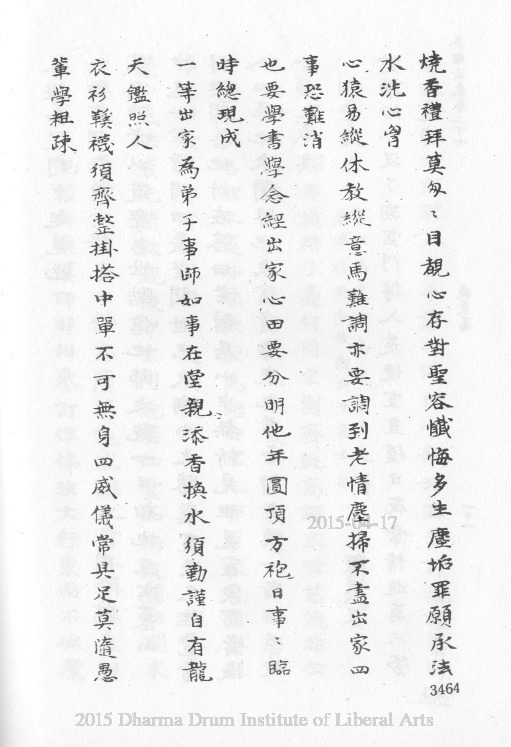 燒香禮拜莫匆〻目覩心存對聖容懺悔多生塵垢罪願承法
水洗心胷
心猿易縱休教縱意馬難調亦要調到老情塵掃不盡出家四
事恐難消
也要學書學念經出家心田要分明他年圓頂方袍日事〻臨
時總現成
一等出家為弟子事師如事在堂親添香換水須勤謹自有龍
天鑑照人
衣衫鞋襪須齊整掛搭中單不可無身四威儀常具足莫隨愚
輩學粗疎
3464
2015-04-17
2015 Dharma Drum Institute of Liberal Arts